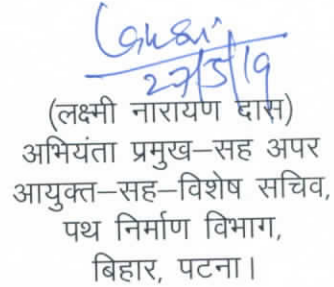 27/5/19
(लक्ष्मी नारायण दास)
अभियंता प्रमुख–सह अपर
आयुक्त–सह–विशेष सचिव,
पथ निर्माण विभाग,
बिहार, पटना।